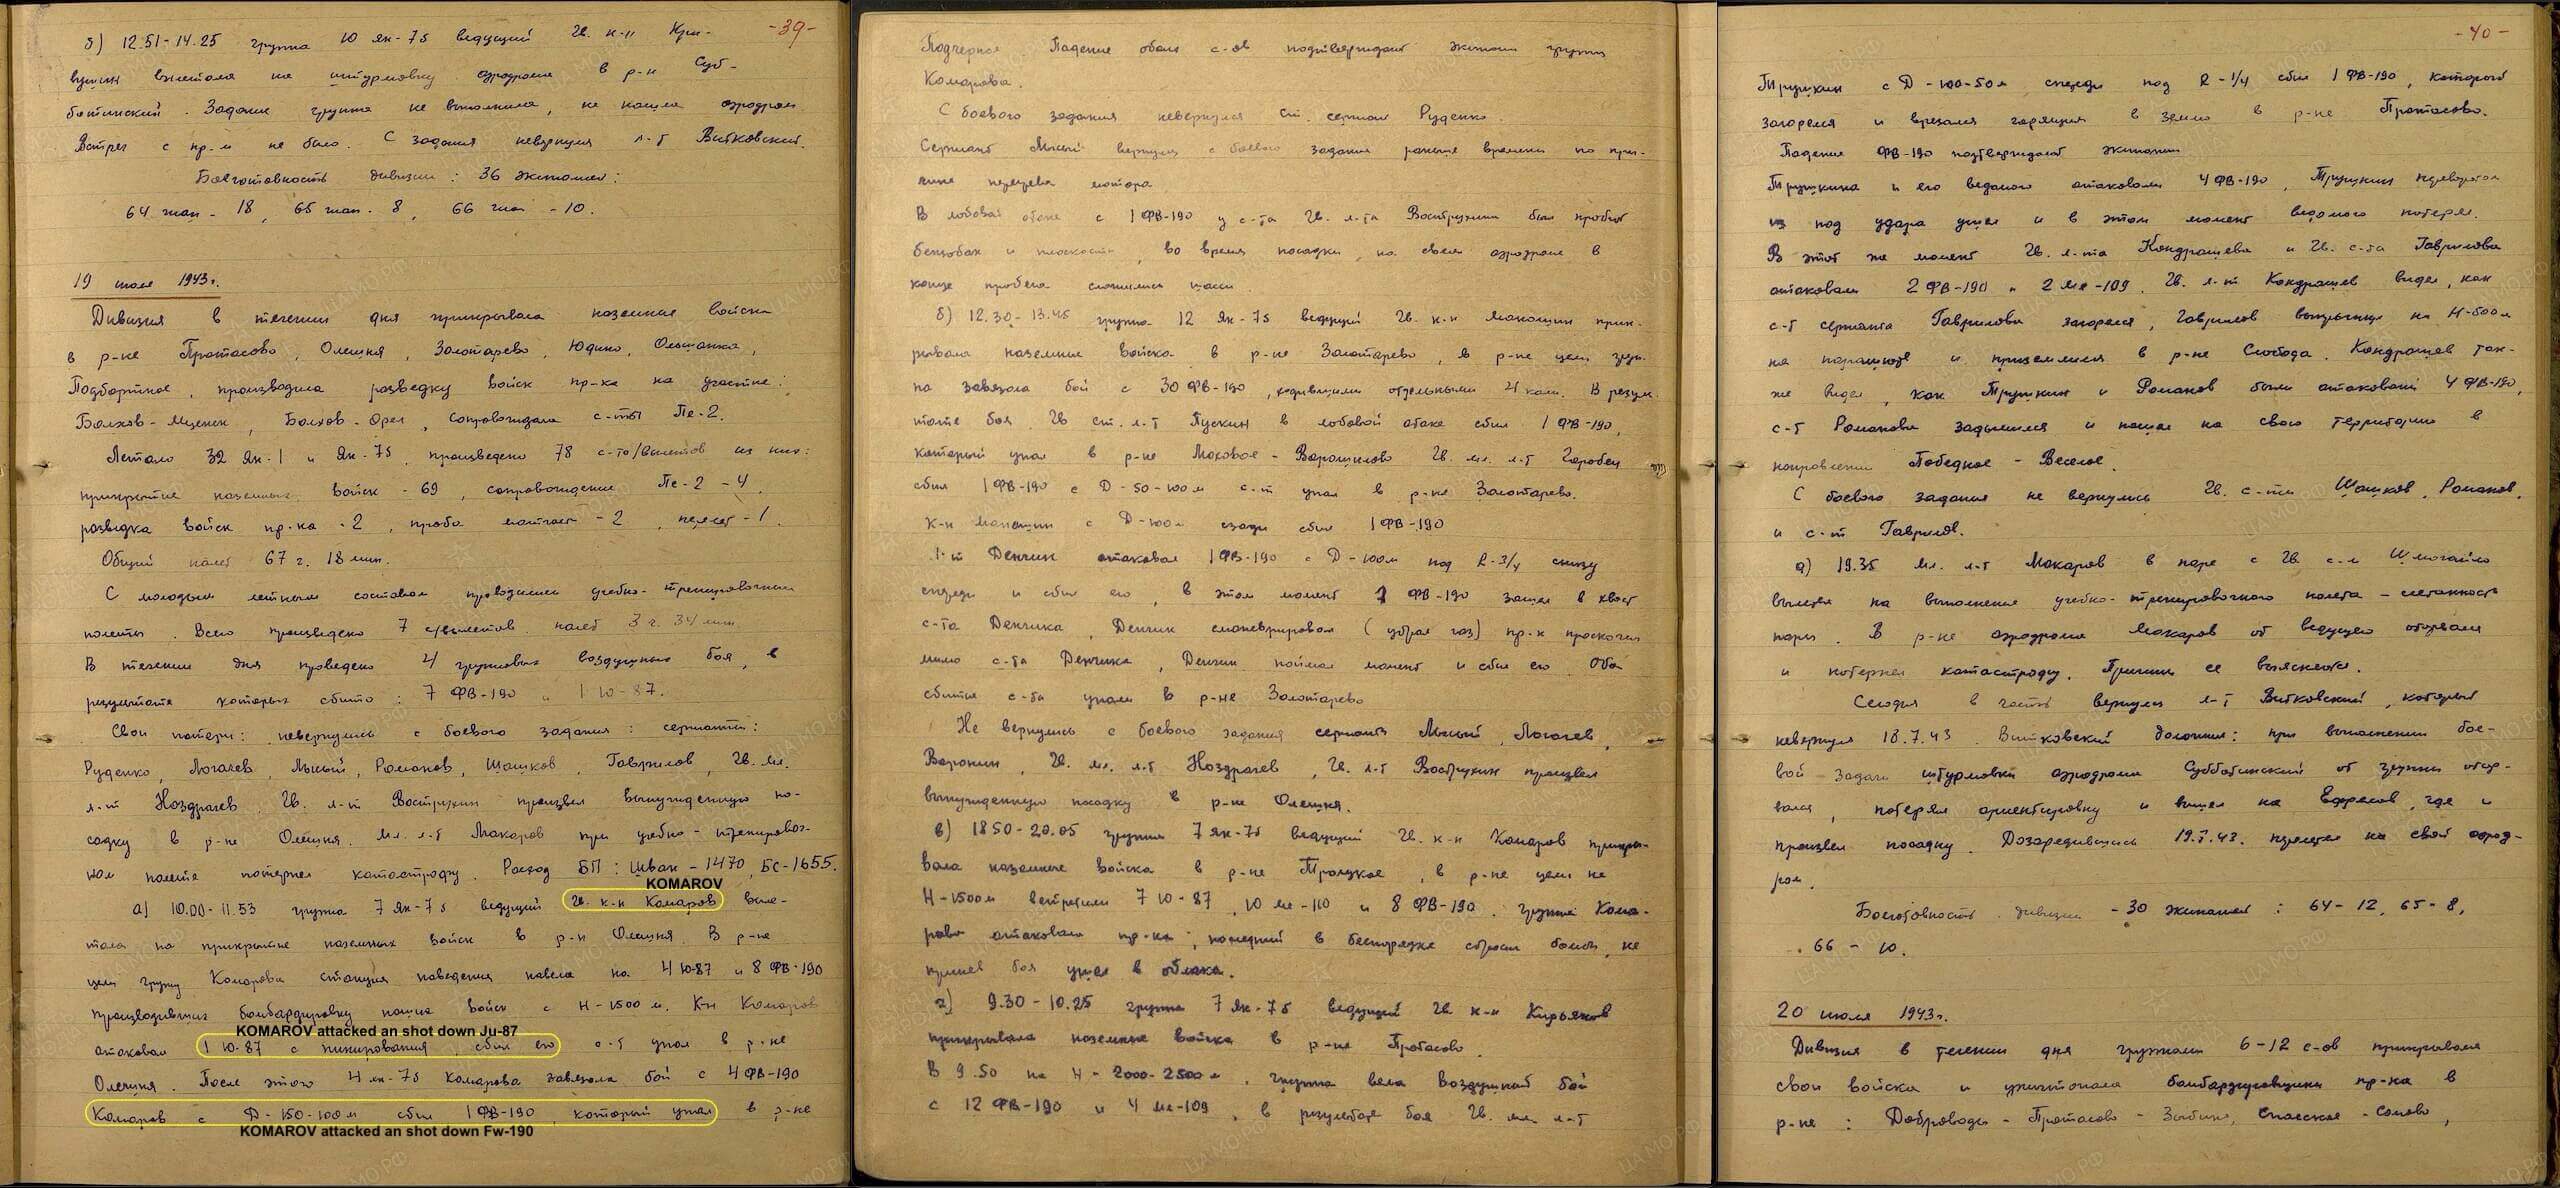 -39-
б) 12.51-14.25 группа 10 Як-7б ведущий Гв. к-н Кри-
вушин вылетала на штурмовку аэродрома в р-н Суб-
ботинский. Задание группа не выполнила, не нашла аэродром.
Встреч с пр-м не было. С задания невернулся л-т Витковский.
Боеготовность дивизии: 36 экипажей:
64 гиап - 18, 65 гиап - 8, 66 гиап - 10.
19 июля 1943г.
Дивизия в течении дня прикрывала наземные войска
в р-не Протасово, Олешня, Золотарево, Юдино, Ольшанка,
Подбортное, производила разведку войск пр-ка на участке:
Болхов-Мценск, Болхов-Орел, сопровождала с-ты Пе-2.
Летало 32 Як-1 и Як-7б, произведено 78 с-то/вылетов из них:
прикрытие наземных войск - 69, сопровождение Пе-2 - 4,
разведка войск пр-ка - 2, проба матчасти - 2, перелет - 1.
Общий налет 67 ч. 18 мин.
С молодым летным составом проводились учебно-тренировочные
полеты. Всего произведено 7 с/вылетов, налет 3 ч. 34 мин.
В течении дня проведено 4 групповых воздушных боя, в
результате которых сбито: 7 ФВ-190 и 1 Ю-87.
Свои потери: невернулись с боевого задания: сержанты:
Руденко, Логачев, Мысый, Романов, Шашков, Гаврилов, Гв. мл.
л-т Ноздрачев. Гв. л-т Вострухин произвел вынужденную по-
садку в р-не Олешня. Мл. л-т Макаров при учебно-тренировоч-
ном полете потерпел катастрофу. Расход БП: Швак - 1470, БС-1655.
KOMAROV
а) 10.00-11.53 группа 7 Як-7б ведущий Гв. к-н Комаров выле-
тала на прикрытие наземных войск в р-н Олешня. В р-не
цели группу Комарова станция наведения навела на 4 Ю-87 и 8 ФВ-190
производивших бомбардировку наших войск с Н-1500 м. К-н Комаров
KOMAROV attacked an shot down Ju-87
атаковал 1 Ю-87 с пикирования, сбил его с-т упал в р-не
Олешня. После этого 4 Як-7б Комарова завязала бой с 4 ФВ-190
Комаров с Д-150-100м сбил 1 ФВ-190, который упал в р-не
KOMAROV attacked an shot down Fw-190
Падение обоих с-ов подтверждают экипажи группы
Комарова.
С боевого задания невернулся ст. сержант Руденко.
Сержант Мысый вернулся с боевого задания раньше времени по при-
чине перегрева мотора.
В лобовой атаке с 1 ФВ-190 у с-та Гв. л-та Вострухина был пробит
бензобак и плоскости, во время посадки, на своем аэродроме в
конце пробега сломились шасси.
б) 12.30-13.45 группа 12 Як-7б ведущий Гв. к-н Маношин прик-
рывала наземные войска в р-не Золотарево, в р-не цели груп-
па завязала бой с 30 ФВ-190, ходившими отдельными 4ками. В резуль-
тате боя Гв. ст. л-т Пускин в лобовой атаке сбил 1 ФВ-190,
который упал в р-не Моховое - Ворошилово Гв. мл. л-т Горобец
сбил 1 ФВ-190 с Д-50-100м с-т упал в р-не Золотарево.
К-н Маношин с Д-100м сзади сбил 1 ФВ-190
Л-т Денчик атаковал 1 ФВ-190 с Д-100м под R-3/4 снизу
спереди и сбил его, в этот момент 1 ФВ-190 зашел в хвост
с-та Денчика, Денчик сманеврировал (убрал газ) пр-к проскочил
мимо с-та Денчика, Денчик поймал момент и сбил его. Оба
сбитые с-та упали в р-не Золотарево
Не вернулись с боевого задания сержанты Мысый, Логачев,
Воронин, Гв. мл. л-т Ноздрачев, Гв. л-т Вострухин произвел
вынужденную посадку в р-не Олешня.
в) 18.50-20.05 группа 7 Як-7б ведущий Гв. к-н Комаров прикры-
вала наземные войска в р-не Троицкое, в р-не цели на
Н-1500м встретили 7 Ю-87, 10 Ме-110 и 8 ФВ-190. Группа Кома-
рова атаковала пр-ка, последний в беспорядке сбросил бомбы, не
приняв боя ушел в облака.
г) 9.30-10.25 группа 7 Як-7б ведущий Гв. к-н Кирьянов
прикрывала наземные войска в р-не Протасово.
В 9.50 на Н-2000-2500м, группа вела воздушный бой
с 12 ФВ-190 и 4 Ме-109, в результате боя Гв. мл. л-т
-40-
Трушкин с Д-100-50м спереди под R-1/4 сбил 1 ФВ-190, который
загорелся и врезался горящим в землю в р-не Протасово.
Падение ФВ-190 подтверждают экипажи
Трушкина и его ведомого атаковали 4 ФВ-190, Трушкин переворотом
из под удара ушел и в этот момент ведомого потерял.
В этот же момент Гв. л-та Кондрашева и Гв. с-та Гаврилова
атаковали 2 ФВ-190 и 2 Ме-109. Гв. л-т Кондрашев видел, как
с-т сержанта Гаврилова загорелся, Гаврилов выпрыгнул на Н-800м
на парашюте и приземлился в р-не Слобода. Кондрашев так-
же видел, как Трушкин и Романов были атакованы 4 ФВ-190,
с-т Романова задымился и пошел на свою территорию в
направлении Победное - Веселое.
С боевого задания не вернулись Гв. с-ты Шашков, Романов,
и с-т Гаврилов.
д) 19.35 мл. л-т Макаров в паре с Гв. с-м Шмогайло
вылетел на выполнение учебно-тренировочного полета - слетанность
пары. В р-не аэродрома Макаров от ведущего оторвался
и потерпел катастрофу. Причины ее выясняются.
Сегодня в часть вернулся л-т Витковский, который
невернулся 18.7.43. Витковский доложил: при выполнении бое-
вой задачи штурмовки аэродрома Субботинский от группы отор-
вался, потерял ориентировку и вышел на Ефремов, где и
произвел посадку. Дозарядившись 19.7.43. перелетел на свой аэрод-
ром.
Боеготовность дивизии - 30 экипажей: 64-12, 65-8,
66 - 10.
20 июля 1943г.
Дивизия в течении дня группами 6-12 с-ов прикрывала
свои войска и уничтожала бомбардировщики пр-ка в
р-не: Доброводы - Протасово - Зыбино, Спасское - Сомово,